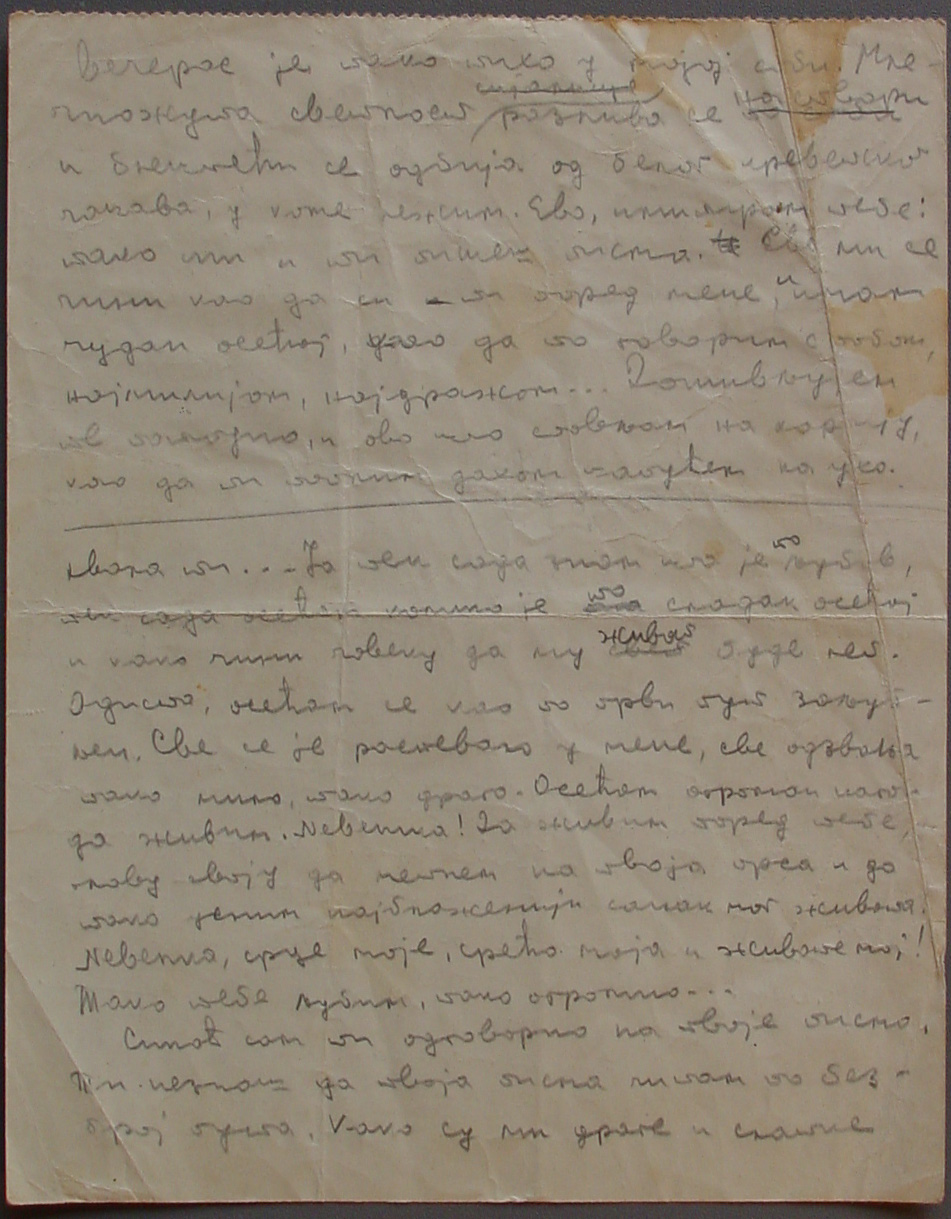 Вечерас је тако тихо у мојој соби. Мле-
чножута светност сијалице разлива се на ствари
и блештећи се одбија од белог креветског
чаршава, у коме лежим. Ево, имитирам тебе:
тако ми и ти пишеш писма. Све ми се
чини као да си ти поред мене, и имам
чудан осећај, као да то говорим с тобом,
најмилијом, најдражом...
и ово што стављам на хартију,
као да ти топлим дахом шапућем на ухо.
хвала ти... Ја тек сада знам што је то љубав,
тек сада осећам колико је то сладак осећај
и како чини човеку да му живот буде леп.
Одиста, осећам се као по први пут заљуб-
љен. Све се је распевало у мене, све одзвања
тако мило, тако драго. Осећам огроман нагон
да живим. Nevenka! Да живим поред тебе,
главу своју да метнем на твоја прса и да
тако усним најблаженији санак мог живота.
Nevenka, срце моје, срећо моја и животе мој!
Тако тебе љубим, тако огромно...
Синоћ сам ти одговорио на твоје писмо.
Ти незнаш да твоја писма читам по без-
број пута. Како су ми драге и слатке